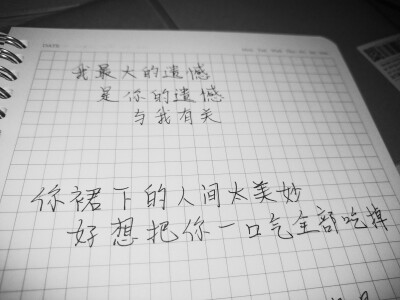 DATE
我最大的遗憾
是你的遗憾
与我有关
你裙下的人间太美妙
好想把你一口气全部吃掉